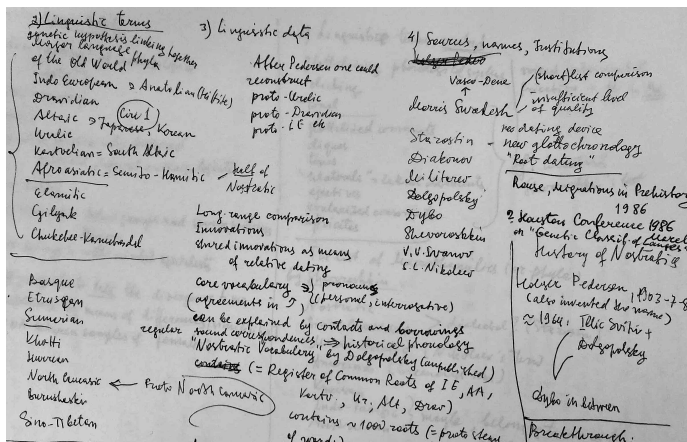 2) Linguistic terms
genetic hypothesis linking together
larger language phyla
of the Old World
Indo European → Anatolian (Hittite)
Dravidian
Altaic → Japanese, Korean
Circ 1
Uralic
Kartvelian = South
Afroasiatic = Semito-Hamitic
half of
Nostratic
Elamitic
Gilyak
Chukchee-Kamchadal
Basque
Etruscan
Sumerian
Khatti
Hurrian
North Caucasic ← Proto North Caucasic
Burushaski
Sino-Tibetan
3) Linguistic data
After Pedersen one could
reconstruct
proto-Uralic
proto-Dravidian
proto-IE etc
Long-range comparison
Innovations
shared innovations as means
of relative dating
core vocabulary → pronouns
(agreements in ) (personal, interrogative)
can be explained by contacts and borrowings
regular sound correspondences, → historical phonology
"Nostratic Vocabulary" by Dolgopolsky (unpublished)
(= Register of Common Roots of IE, AA,
Kartv, Ur, Alt, Drav)
contains ~ 1000 roots (= proto stems
of words)
4) Sources, names, Institutions
Vasco-Dene
↑
Morris Swadesh
(short) list comparison
insufficient level
of quality
no dating device
Starostin - new glottochronology
"Root dating"
Diakonov
Militarev
Dolgopolsky
Dybo
Shevoroshkin
V.V. Ivanov
S.L. Nikolaev
Rouse, Migrations in Prehistory
1986
? Houston Conference 1986
on "Genetic Classif of Langes"
History of Nostratic
Holger Pedersen, 1903
(also invented the name)
≈ 1964: Illic Svityc +
Dolgopolsky
Dybo in between
Breakthrough: